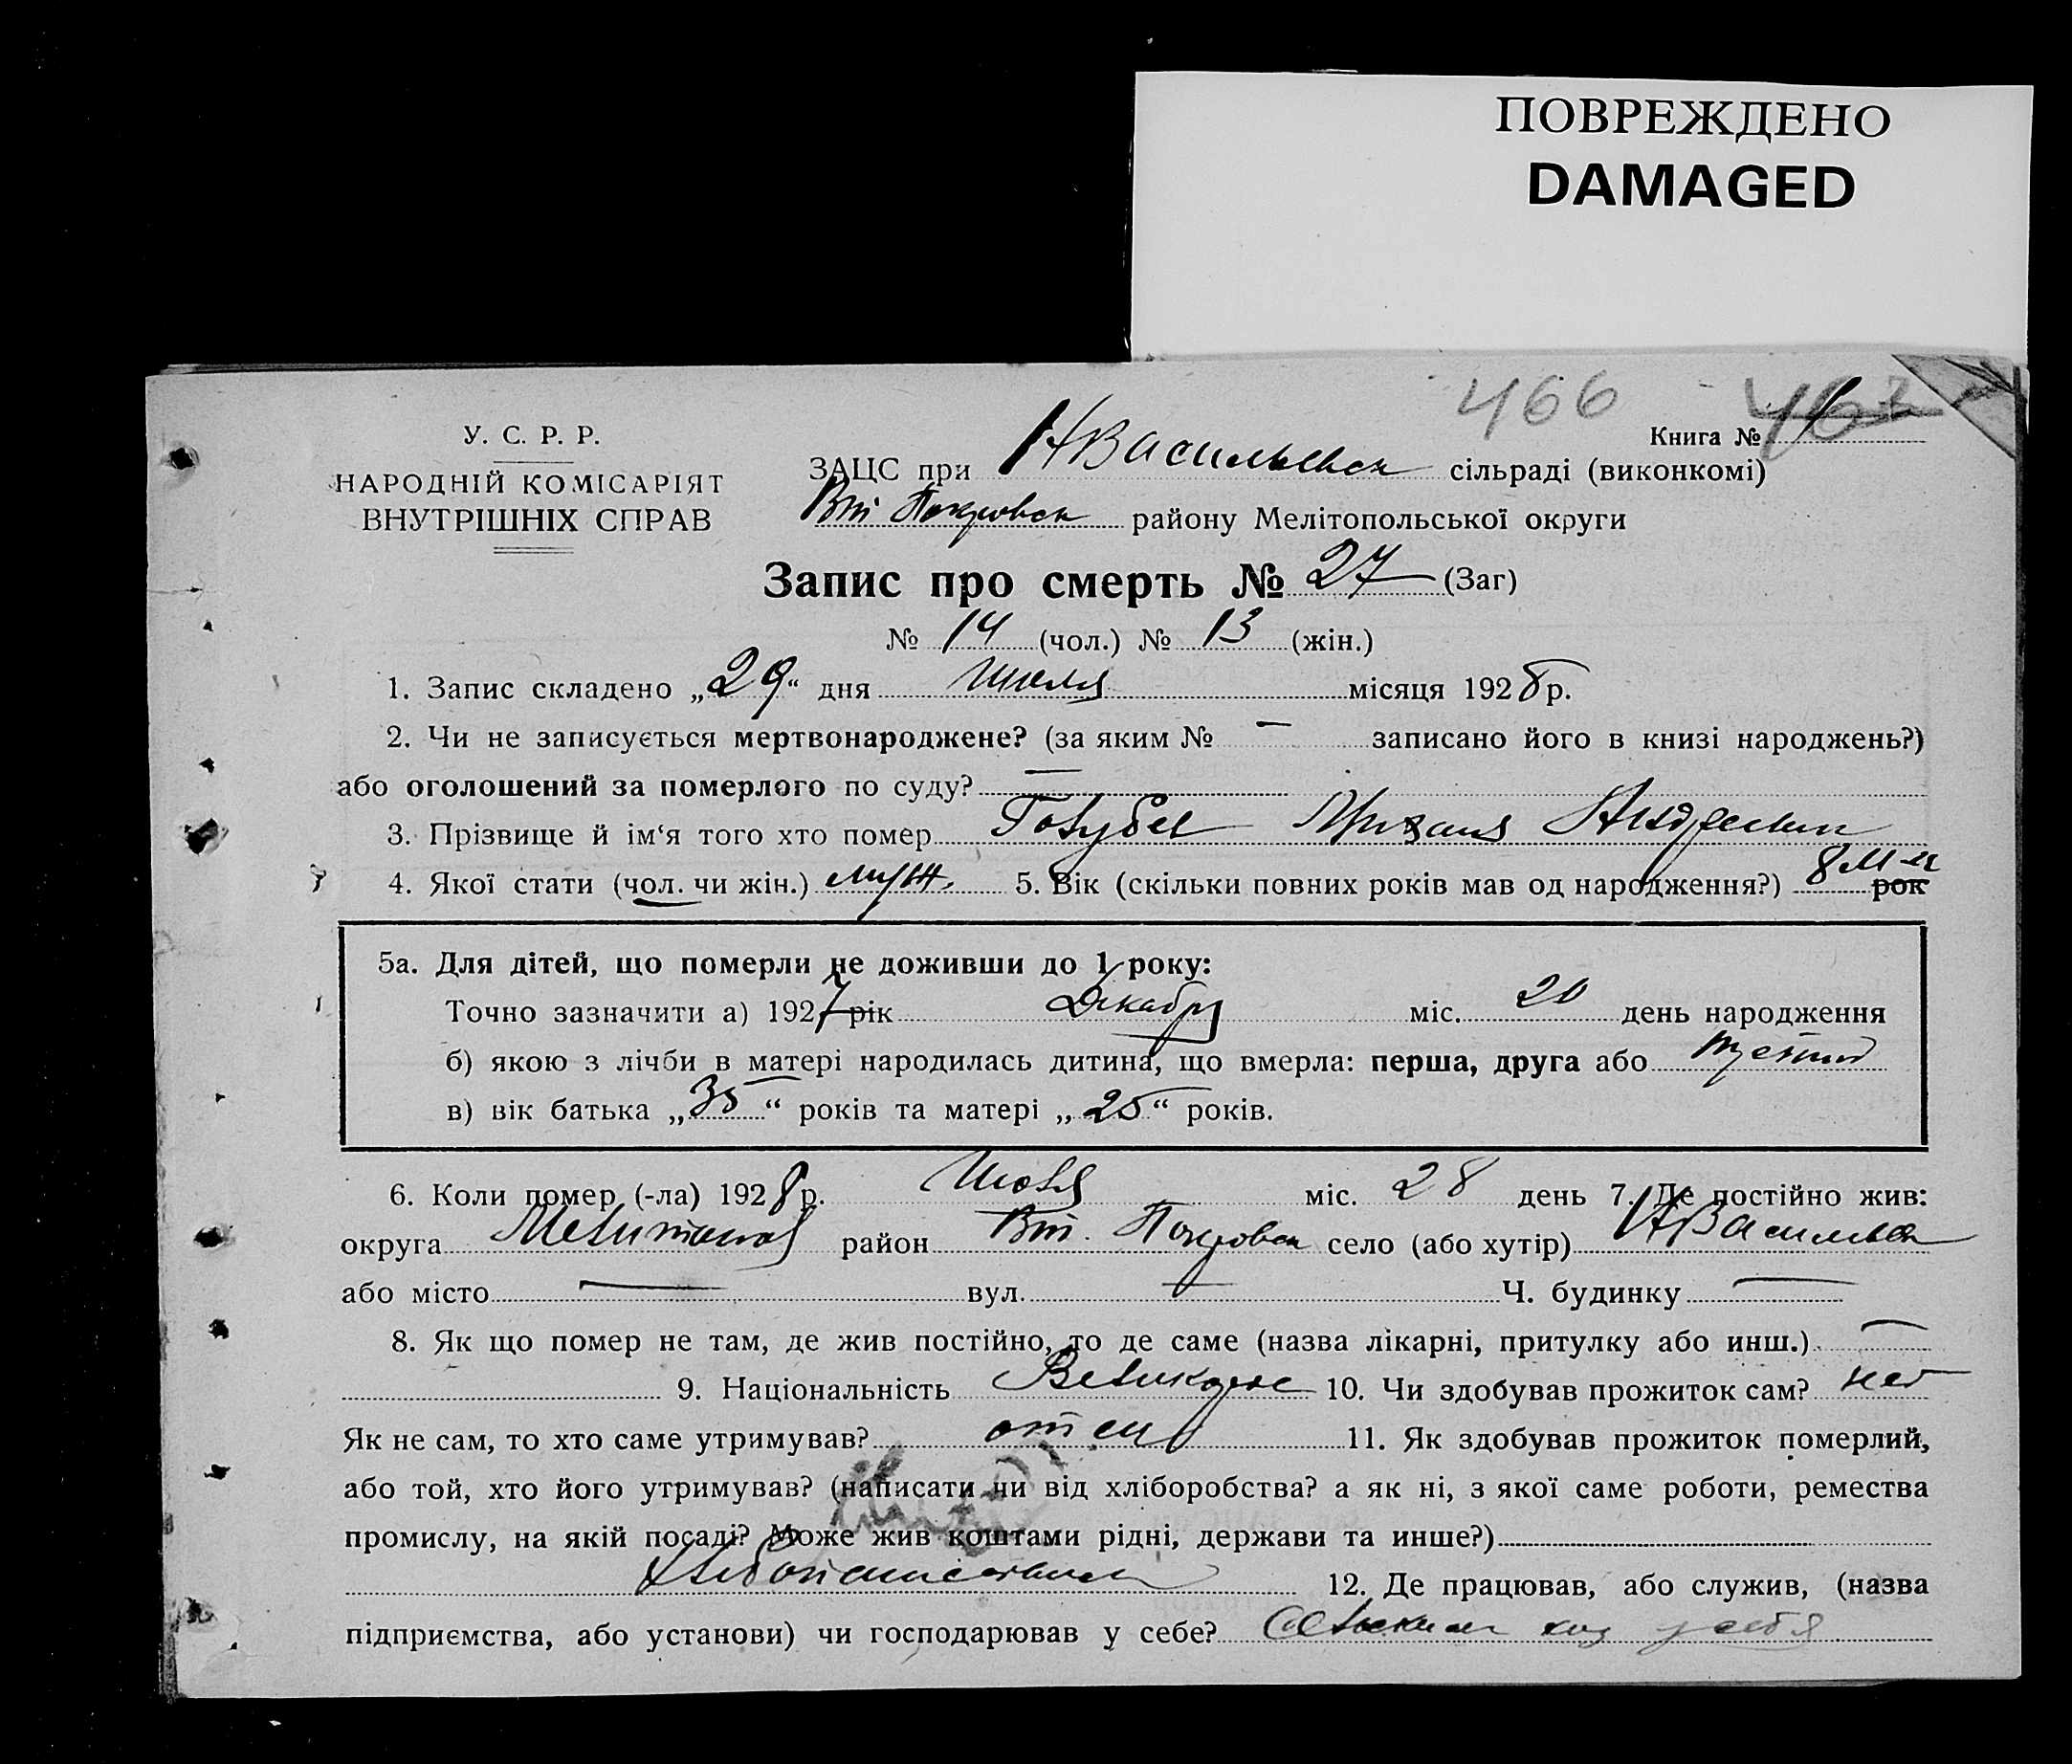 ПОВРЕЖДЕНО
DAMAGED
466 467
У. С. Р. Р.
Книга № 1
НАРОДНІЙ КОМІСАРІЯТ
ВНУТРІШНІХ СПРАВ
ЗАЦС при НВасильевск сільраді (виконкомі)
Вт Покровск району Мелітопольської округи
Запис про смерть № 27 (Заг)
№ 14 (чол.) № 13 (жін.)
1. Запис складено „29“ дня Июля місяця 1928 р.
2. Чи не записується мертвонароджене? (за яким № — записано його в книзі народжень?)
або оголошений за померлого по суду? —
3. Прізвище й ім‘я того хто помер Голубев Михаил Андреевич
4. Якої стати (чол. чи жін.) муж. 5. Вік (скільки повних років мав од народження?) 8 м-ц рок
5а. Для дітей, що померли не доживши до 1 року:
Точно зазначити а) 1927 рік Декабря міс. 20 день народження
б) якою з лічби в матері народилась дитина, що вмерла: перша, друга або третий
в) вік батька „35“ років та матері „25“ років.
6. Коли помер (-ла) 1928 р. Июля міс. 28 день 7. Де постійно жив:
округа Мелитопол район Вт. Покровск село (або хутір) НВасильевк
або місто — вул. — Ч. будинку —
8. Як що помер не там, де жив постійно, то де саме (назва лікарні, притулку або инш.) —
9. Національність Великорос 10. Чи здобував прожиток сам? нет
Як не сам, то хто саме утримував? отец 11. Як здобував прожиток померлий,
або той, хто його утримував? (написати чи від хліборобства? а як ні, з якої саме роботи, ремества
промислу, на якій посаді? Може жив коштами рідні, держави та инше?)
Хлебопашеством 12. Де працював, або служив, (назва
підприємства, або установи) чи господарював у себе? Сельским хоз у себя